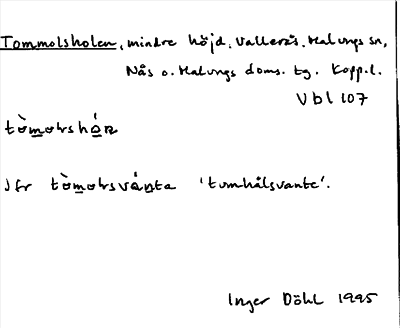 Tommolsholen, mindre höjd. Vallerås. Malungs sn,
Nås o. Malungs doms. tg. Kopp. l.
Vbl 107
Jfr 'tumhålsvante'.
Inger Döhl 1995